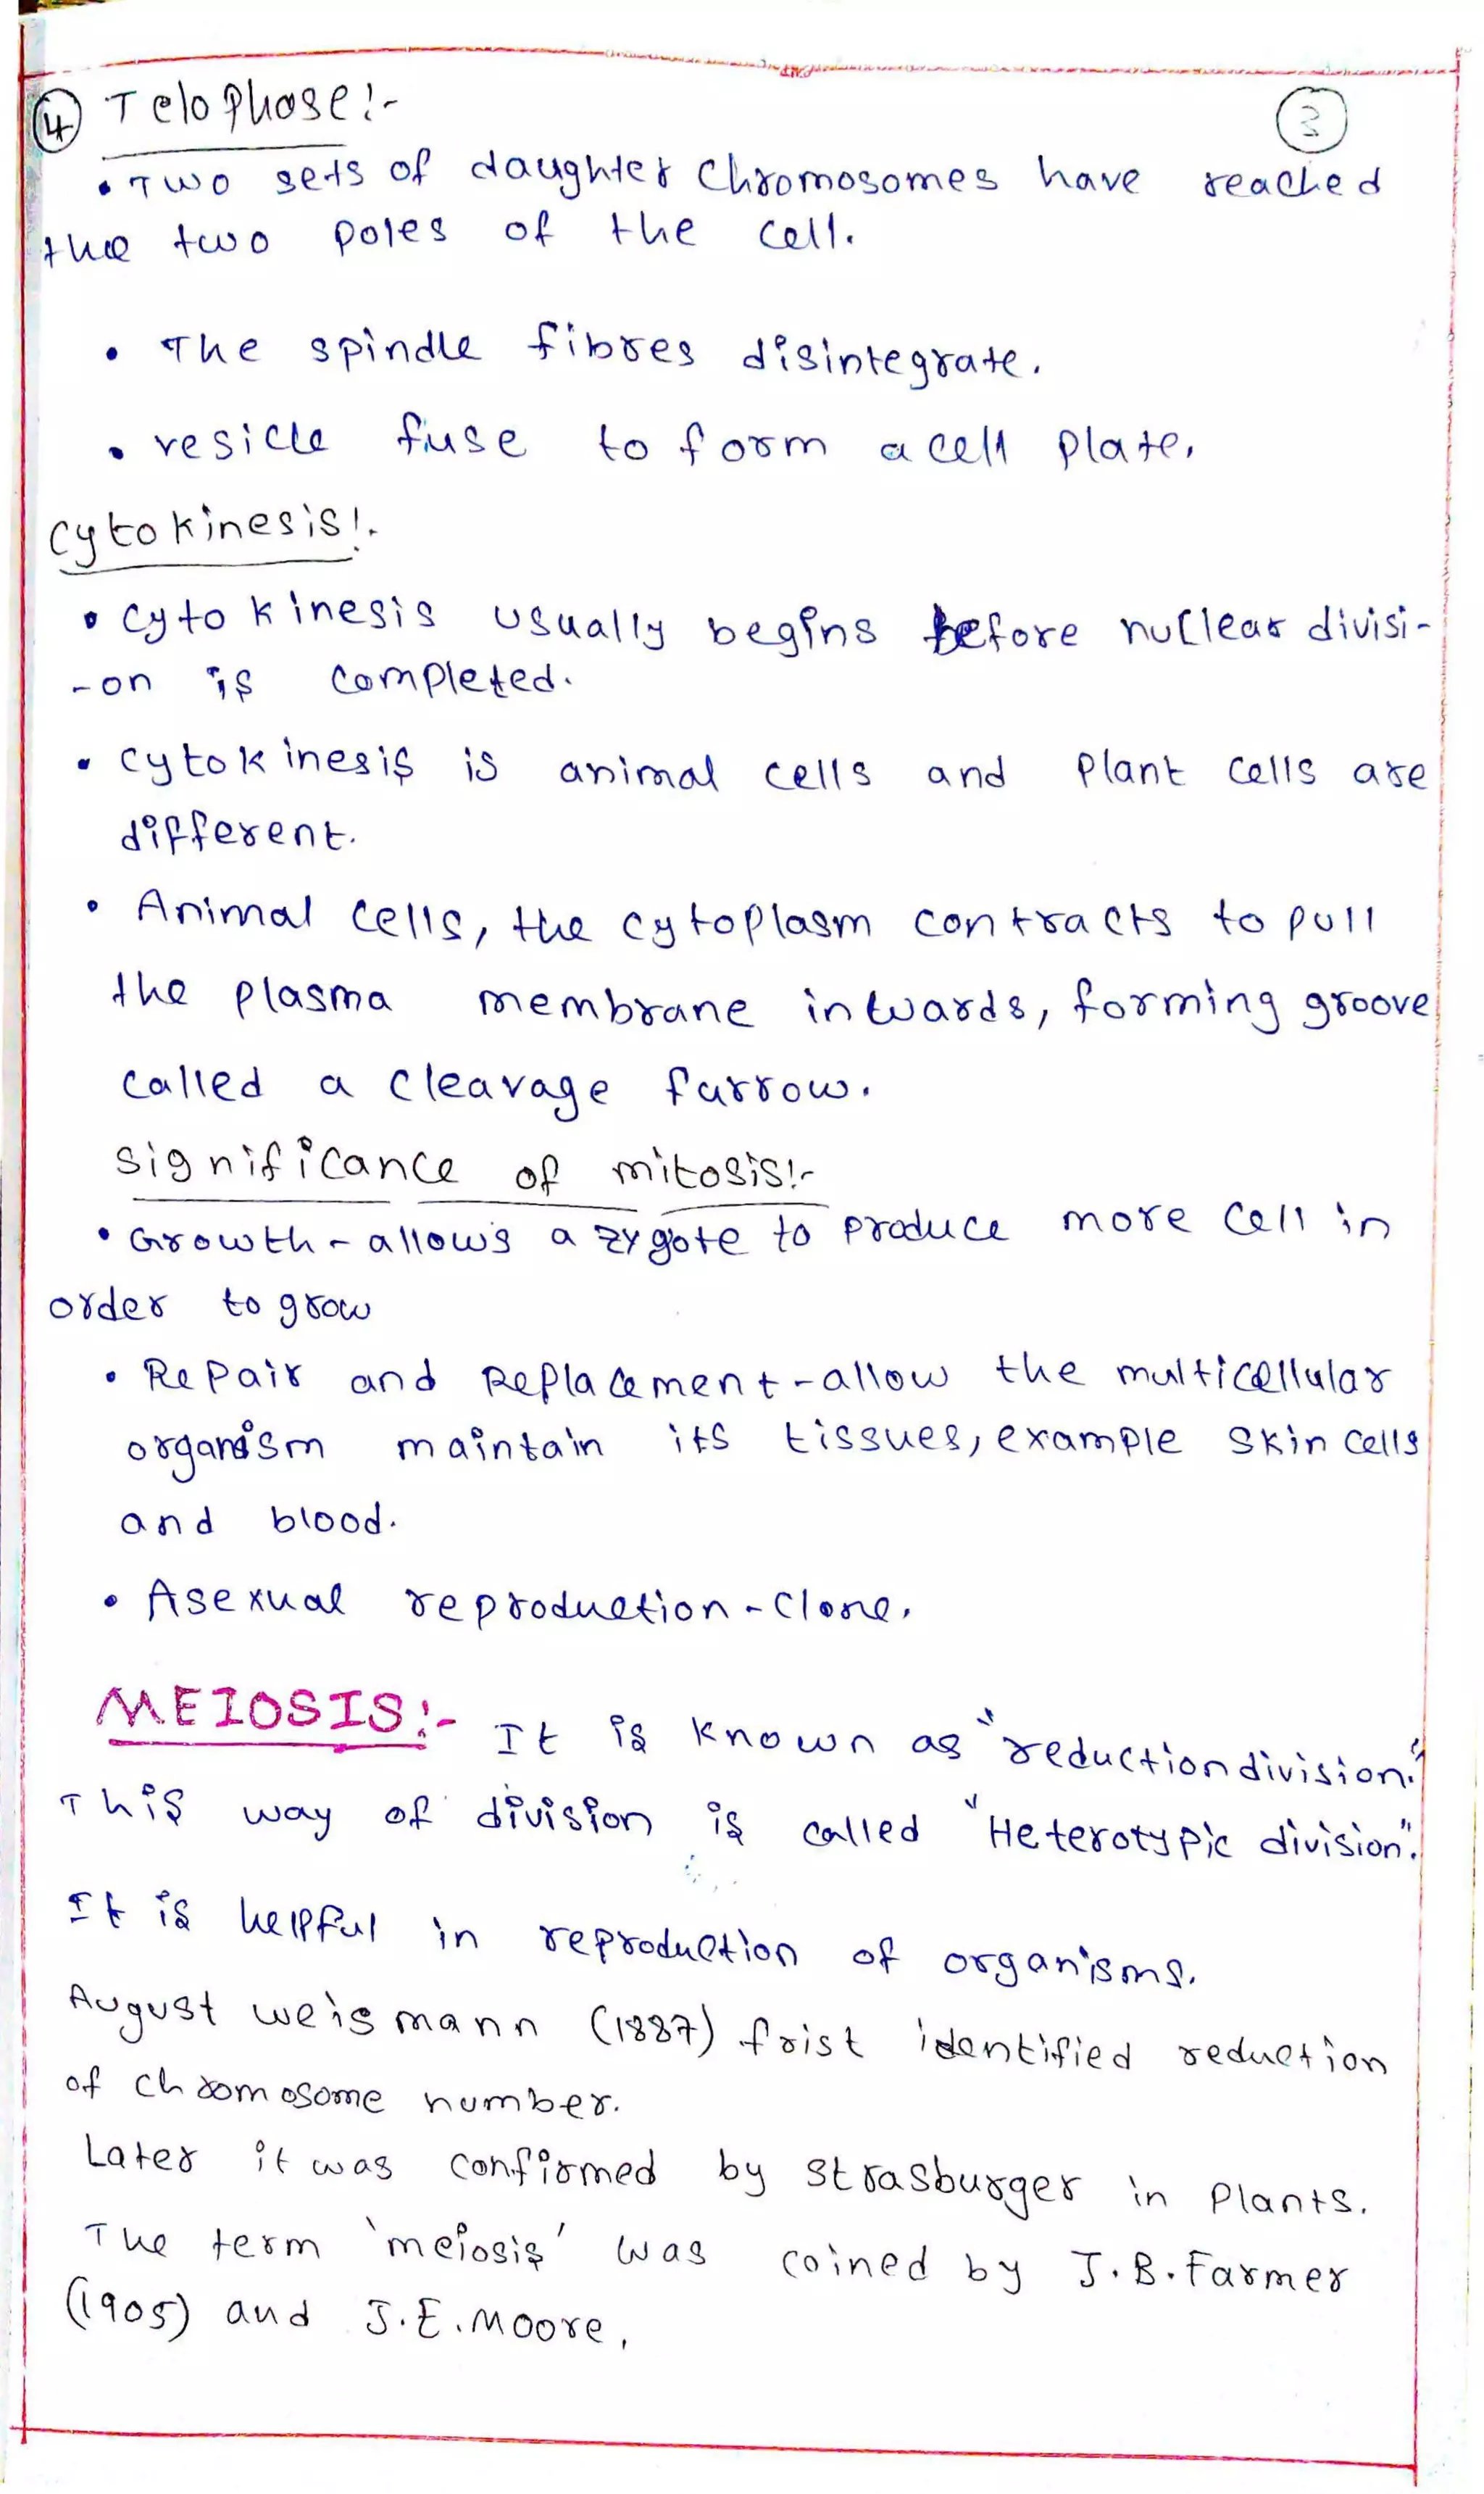 ④ Telophase:-
③
• Two sets of daughter chromosomes have reached
the two poles of the cell.
• The spindle fibres disintegrate.
• vesicle fuse to form a cell plate.
Cytokinesis:-
• Cytokinesis usually begins before nuclear divisi-
-on is completed.
• Cytokinesis is animal cells and plant cells are
different.
• Animal cells, the cytoplasm contracts to pull
the plasma membrane inwards, forming groove
called a cleavage furrow.
Significance of mitosis:-
• Growth - allows a zygote to produce more cell in
order to grow
• Repair and Replacement - allow the multicellular
organism maintain its tissues, example skin cells
and blood.
• Asexual reproduction - clone.
MEIOSIS:- It is known as "reduction division."
This way of division is called "Heterotypic division".
It is helpful in reproduction of organisms.
August weismann (1887) frist identified reduction
of chromosome number.
Later it was confirmed by strasburger in plants.
The term 'meiosis' was coined by J.B.Farmer
(1905) and J.E.Moore.